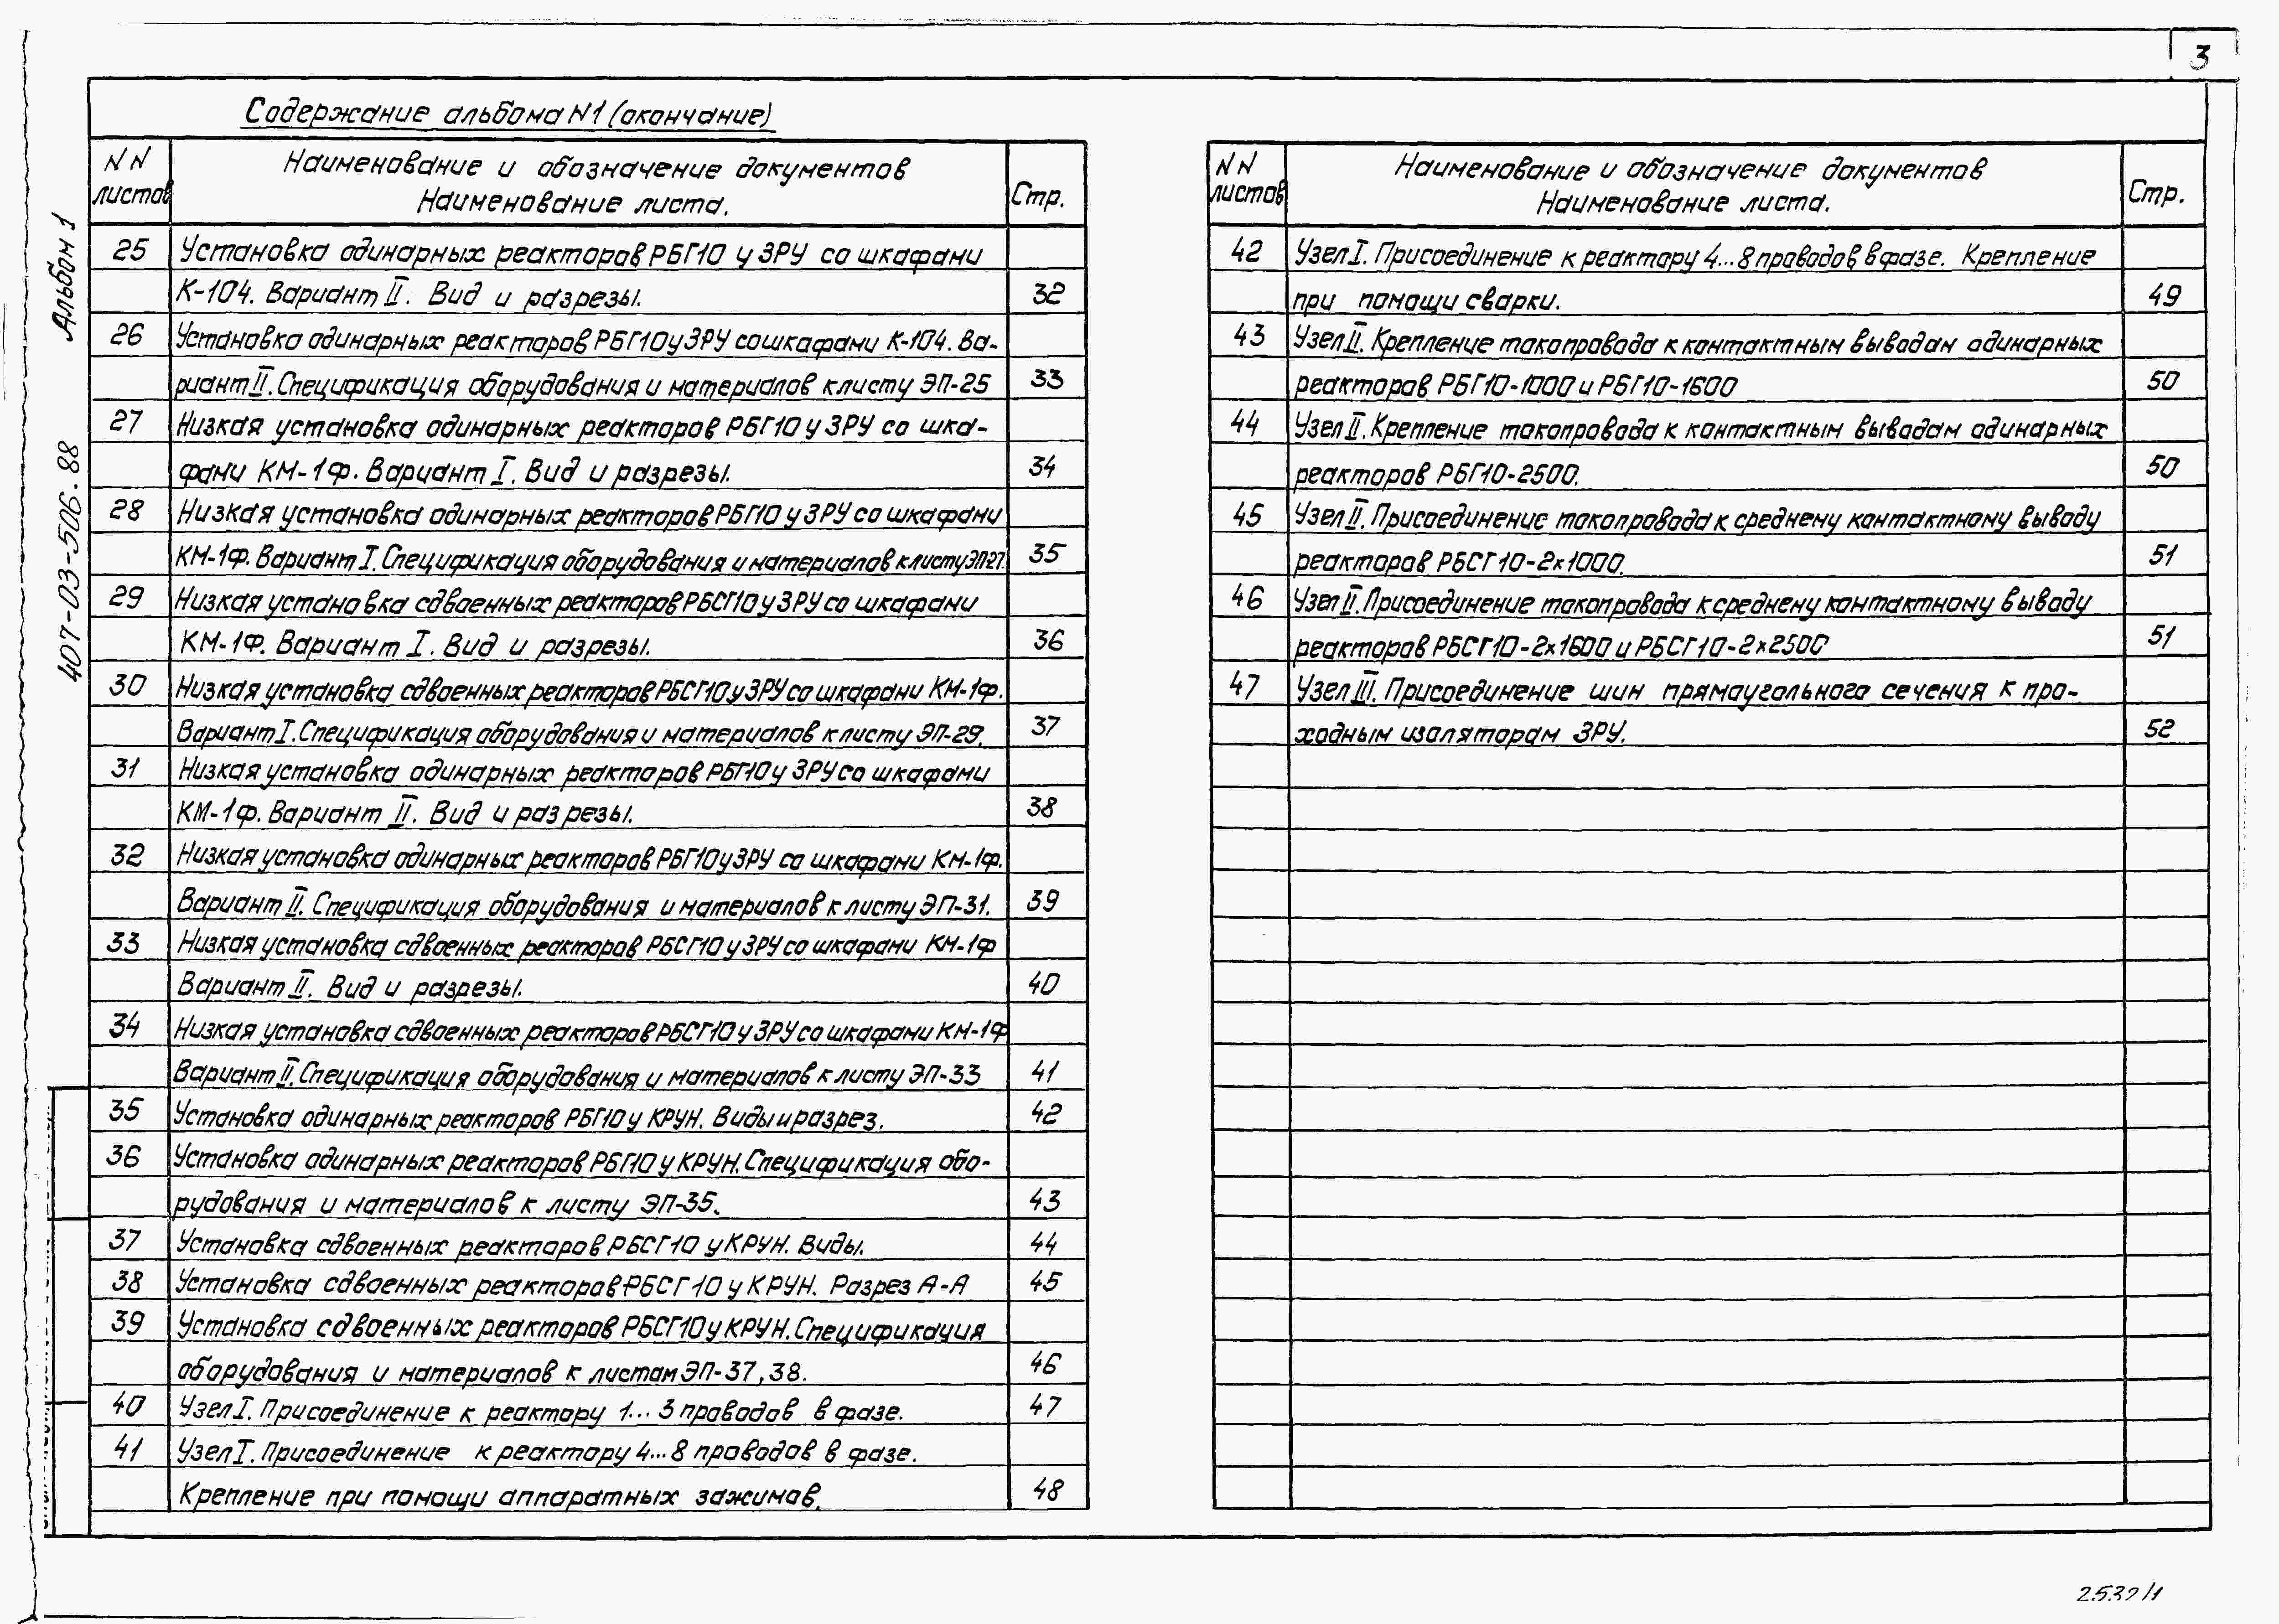 3
Содержание альбома N1 (окончание)
NN листов
Наименование и обозначение документов
Наименование листа.
Стр.
25 Установка одинарных реакторов РБГ10 у ЗРУ со шкафами
К-104. Вариант II. Вид и разрезы. 32
26 Установка одинарных реакторов РБГ10 у ЗРУ со шкафами К-104. Ва-
риант II. Спецификация оборудования и материалов к листу ЭП-25 33
27 Низкая установка одинарных реакторов РБГ10 у ЗРУ со шка-
фами КМ-1Ф. Вариант I. Вид и разрезы. 34
28 Низкая установка одинарных реакторов РБГ10 у ЗРУ со шкафами
КМ-1Ф. Вариант I. Спецификация оборудования и материалов к листу ЭП27. 35
29 Низкая установка сдвоенных реакторов РБСГ10 у ЗРУ со шкафами
КМ-1Ф. Вариант I. Вид и разрезы. 36
30 Низкая установка сдвоенных реакторов РБСГ10 у ЗРУ со шкафами КМ-1Ф.
Вариант I. Спецификация оборудования и материалов к листу ЭП-29. 37
31 Низкая установка одинарных реакторов РБГ10 у ЗРУ со шкафами
КМ-1Ф. Вариант II. Вид и разрезы. 38
32 Низкая установка одинарных реакторов РБГ10 у ЗРУ со шкафами КМ-1Ф.
Вариант II. Спецификация оборудования и материалов к листу ЭП-31. 39
33 Низкая установка сдвоенных реакторов РБСГ10 у ЗРУ со шкафами КМ-1Ф
Вариант II. Вид и разрезы. 40
34 Низкая установка сдвоенных реакторов РБСГ10 у ЗРУ со шкафами КМ-1Ф
Вариант II. Спецификация оборудования и материалов к листу ЭП-33 41
35 Установка одинарных реакторов РБГ10 у КРУН. Виды и разрез. 42
36 Установка одинарных реакторов РБГ10 у КРУН. Спецификация обо-
рудования и материалов к листу ЭП-35. 43
37 Установка сдвоенных реакторов РБСГ10 у КРУН. Виды. 44
38 Установка сдвоенных реакторов РБСГ10 у КРУН. Разрез А-А 45
39 Установка сдвоенных реакторов РБСГ10 у КРУН. Спецификация
оборудования и материалов к листам ЭП-37, 38. 46
40 Узел I. Присоединение к реактору 1...3 проводов в фазе. 47
41 Узел I. Присоединение к реактору 4...8 проводов в фазе.
Крепление при помощи аппаратных зажимов. 48
NN листов
Наименование и обозначение документов
Наименование листа.
Стр.
42 Узел I. Присоединение к реактору 4...8 проводов в фазе. Крепление
при помощи сварки. 49
43 Узел II. Крепление токопровода к контактным выводам одинарных
реакторов РБГ10-1000 и РБГ10-1600 50
44 Узел II. Крепление токопровода к контактным выводам одинарных
реакторов РБГ10-2500. 50
45 Узел II. Присоединение токопровода к среднему контактному выводу
реакторов РБСГ10-2х1000. 51
46 Узел II. Присоединение токопровода к среднему контактному выводу
реакторов РБСГ10-2х1600 и РБСГ10-2х2500 51
47 Узел III. Присоединение шин прямоугольного сечения к про-
ходным изоляторам ЗРУ. 52
Альбом 1
407-03-506.88
2532/1